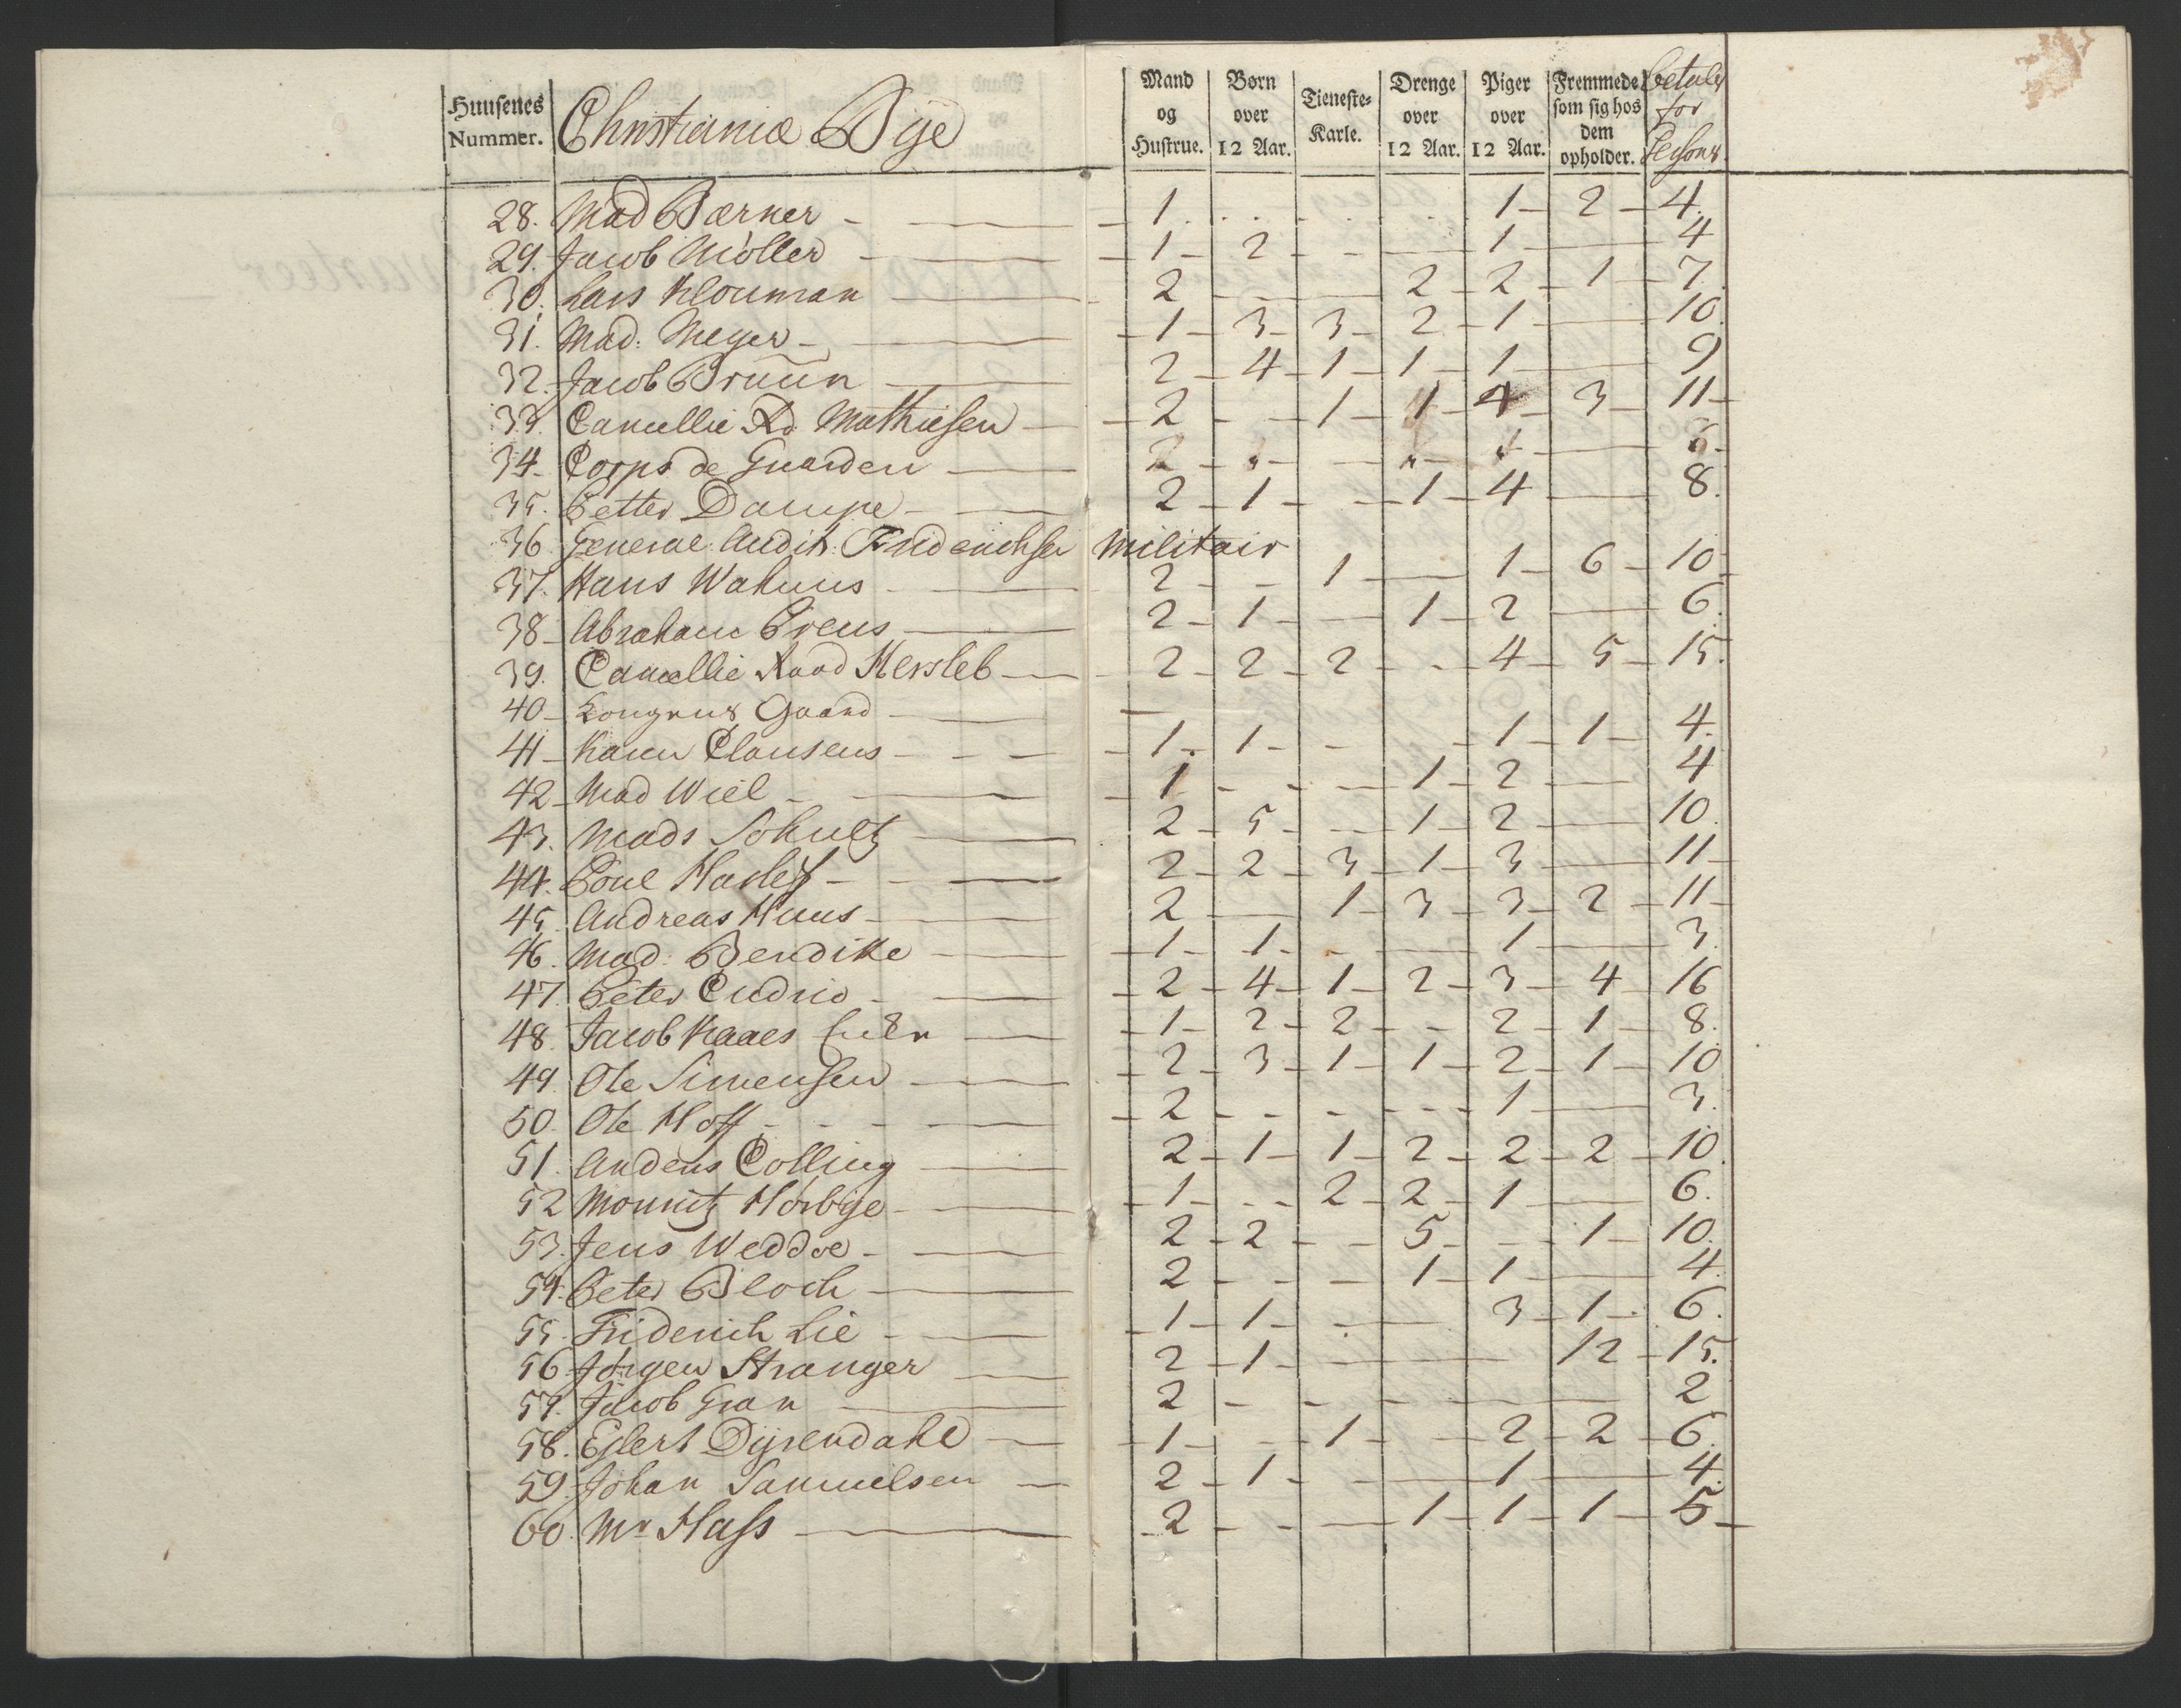 Huusenes Nummer. | Christiania Bÿe | Mand og Hustrue. | Børn over 12 Aar. | Tieneste-Karle. | Drenge over 12 Aar. | Piger over 12 Aar. | Fremmede som sig hos dem opholder. | betaler for Persons
28. Mad Bærner - 1 . . . 1 - 2 - 4.
29. Jacob Møller - 1 - 2 - - 1 - 4
30. Lars Klouman 2 - - 2 - 2 - 1 - 7.
31. Mad: Meyer - 1 - 3 - 3 - 2 - 1 - 10.
32. Jacob Bruun 2 - 4 - 1 - 1 - 1 - 9
33. Cancellie Rd. Mathiesen - 2 - - 1 - 1 - 4 - 3 - 11 -
34 - Corps de Guarden
35. Petter Dampe - 2 - 1 - - 1 - 4 - 8.
36 General: Audit: Friderichsen Militair
37. Hans Wahuus - 2 - - 1 - 1 - 6 - 10 -
38 - Abraham Preus 2 - 1 - 1 - 2 - 6.
39. Cancellie Raad Hersleb - 2 - 2 - 2 - - 4 - 5 - 15.
40 - Kongens Gaard -
41 - Karen Clausens - - - 1 - 1 - - - 1 - 1 - 4.
42 - Mad Wiel - 1 - - - 1 - 2 - 4
43. Mads Schultz 2 - 5 - - 1 - 2 - 10.
44. Poul - 2 - 2 - 3 - 1 - 3 - 11 -
45. Andreas Huus - 2 - 1 - 3 - 3 - 2 - 11 -
46. Mad: Bendike - 1 - 1 - - 1 - 3.
47. Peter - 2 - 4 - 1 - 2 - 3 - 4 - 16
48. Jacob Kaaes - 1 - 2 - 2 - - 2 - 1 - 8.
49. Ole Simensen - 2 - 3 - 1 - 1 - 2 - 1 - 10
50. Ole Hoff - - - 2 - - - - 1 - 3.
51. Anders Colling 2 - 1 - 1 - 2 - 2 - 2 - 10.
52 Mouritz Hørbye - 1 - - 2 - 2 - 1 - 6.
53. Jens Weddøe - 2 - 2 - - 5 - - 1 - 10.
54. Peter Bloch 2 - - - 1 - 1 - 4.
55. Friderich Lie - 1 - 1 - - 3 - 1 - 6.
56 Jørgen Stranger 2 - 1 - 12 - 15.
57. Jacob Gran 2 - - - 2
58. Eylert Dysendahl - 1 - - 1 - - 2 - 2 - 6.
59. Johan Samuelsen - 2 - 1 - - 1 - 4.
60. Mr Hass - 2 - - - 1 - 1 - 1 - 5 -